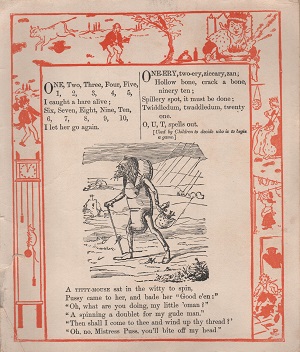 ONE, Two, Three, Four, Five,
1, 2, 3, 4, 5,
I caught a hare alive;
Six, Seven, Eight, Nine, Ten,
6, 7, 8, 9, 10,
I let her go again.
ONE-ERY, two-ery, ziccary, zan;
Hollow bone, crack a bone,
ninery ten;
Spillery spot, it must be done;
Twiddledum, twaddledum, twenty
one.
O, U, T, spells out.
[Used by Children to decide who is to begin
a game.]
A TITTY-MOUSE sat in the witty to spin,
Pussy came to her, and bade her "Good e'en;"
"Oh, what are you doing, my little 'oman?"
"A spinning a doublet for my gude man."
"Then shall I come to thee and wind up thy thread?'
"Oh, no, Mistress Puss, you'll bite off my head"